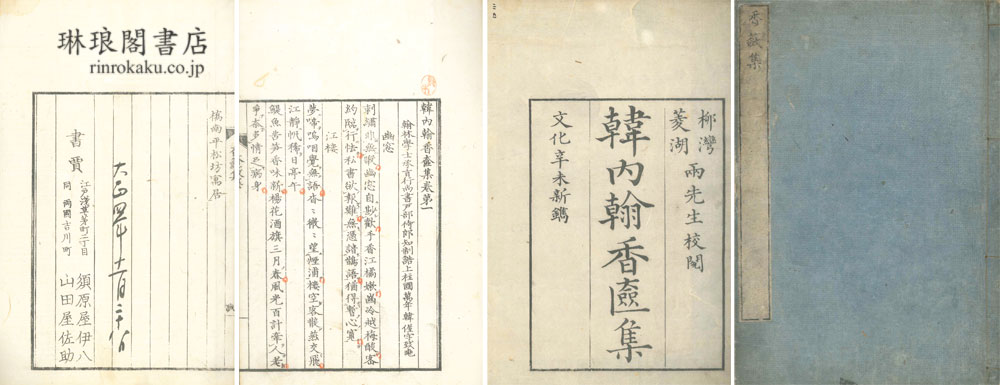 香奩集
柳灣
菱湖
兩先生校閲
韓内翰香奩集
文化辛未新鐫
韓内翰香奩集卷第一
翰林學士承旨行尚書戸部侍郎知制誥上柱國萬年韓偓字致
幽窓
刺繡非無暇幽窓自尠歡手香江橘嫩齒冷越梅酸密
約臨行怯私書欲報難無憑諳鵲語猶得暫心寛
江樓
夢啼嗚咽覺無語杳〻微〻望煙浦樓空客散燕交飛
江靜帆稀日亭午
魚苦笋香味新楊花酒旗三月春風光百計牽人老
爭奈多情足身
琳琅閣書店
rinrokaku.co.jp
橋南平松坊寓居
大正四年十一月二十八日
書賈
江戸浅草茅町二丁目 須原屋伊八
同 両國吉川町 山田屋佐助